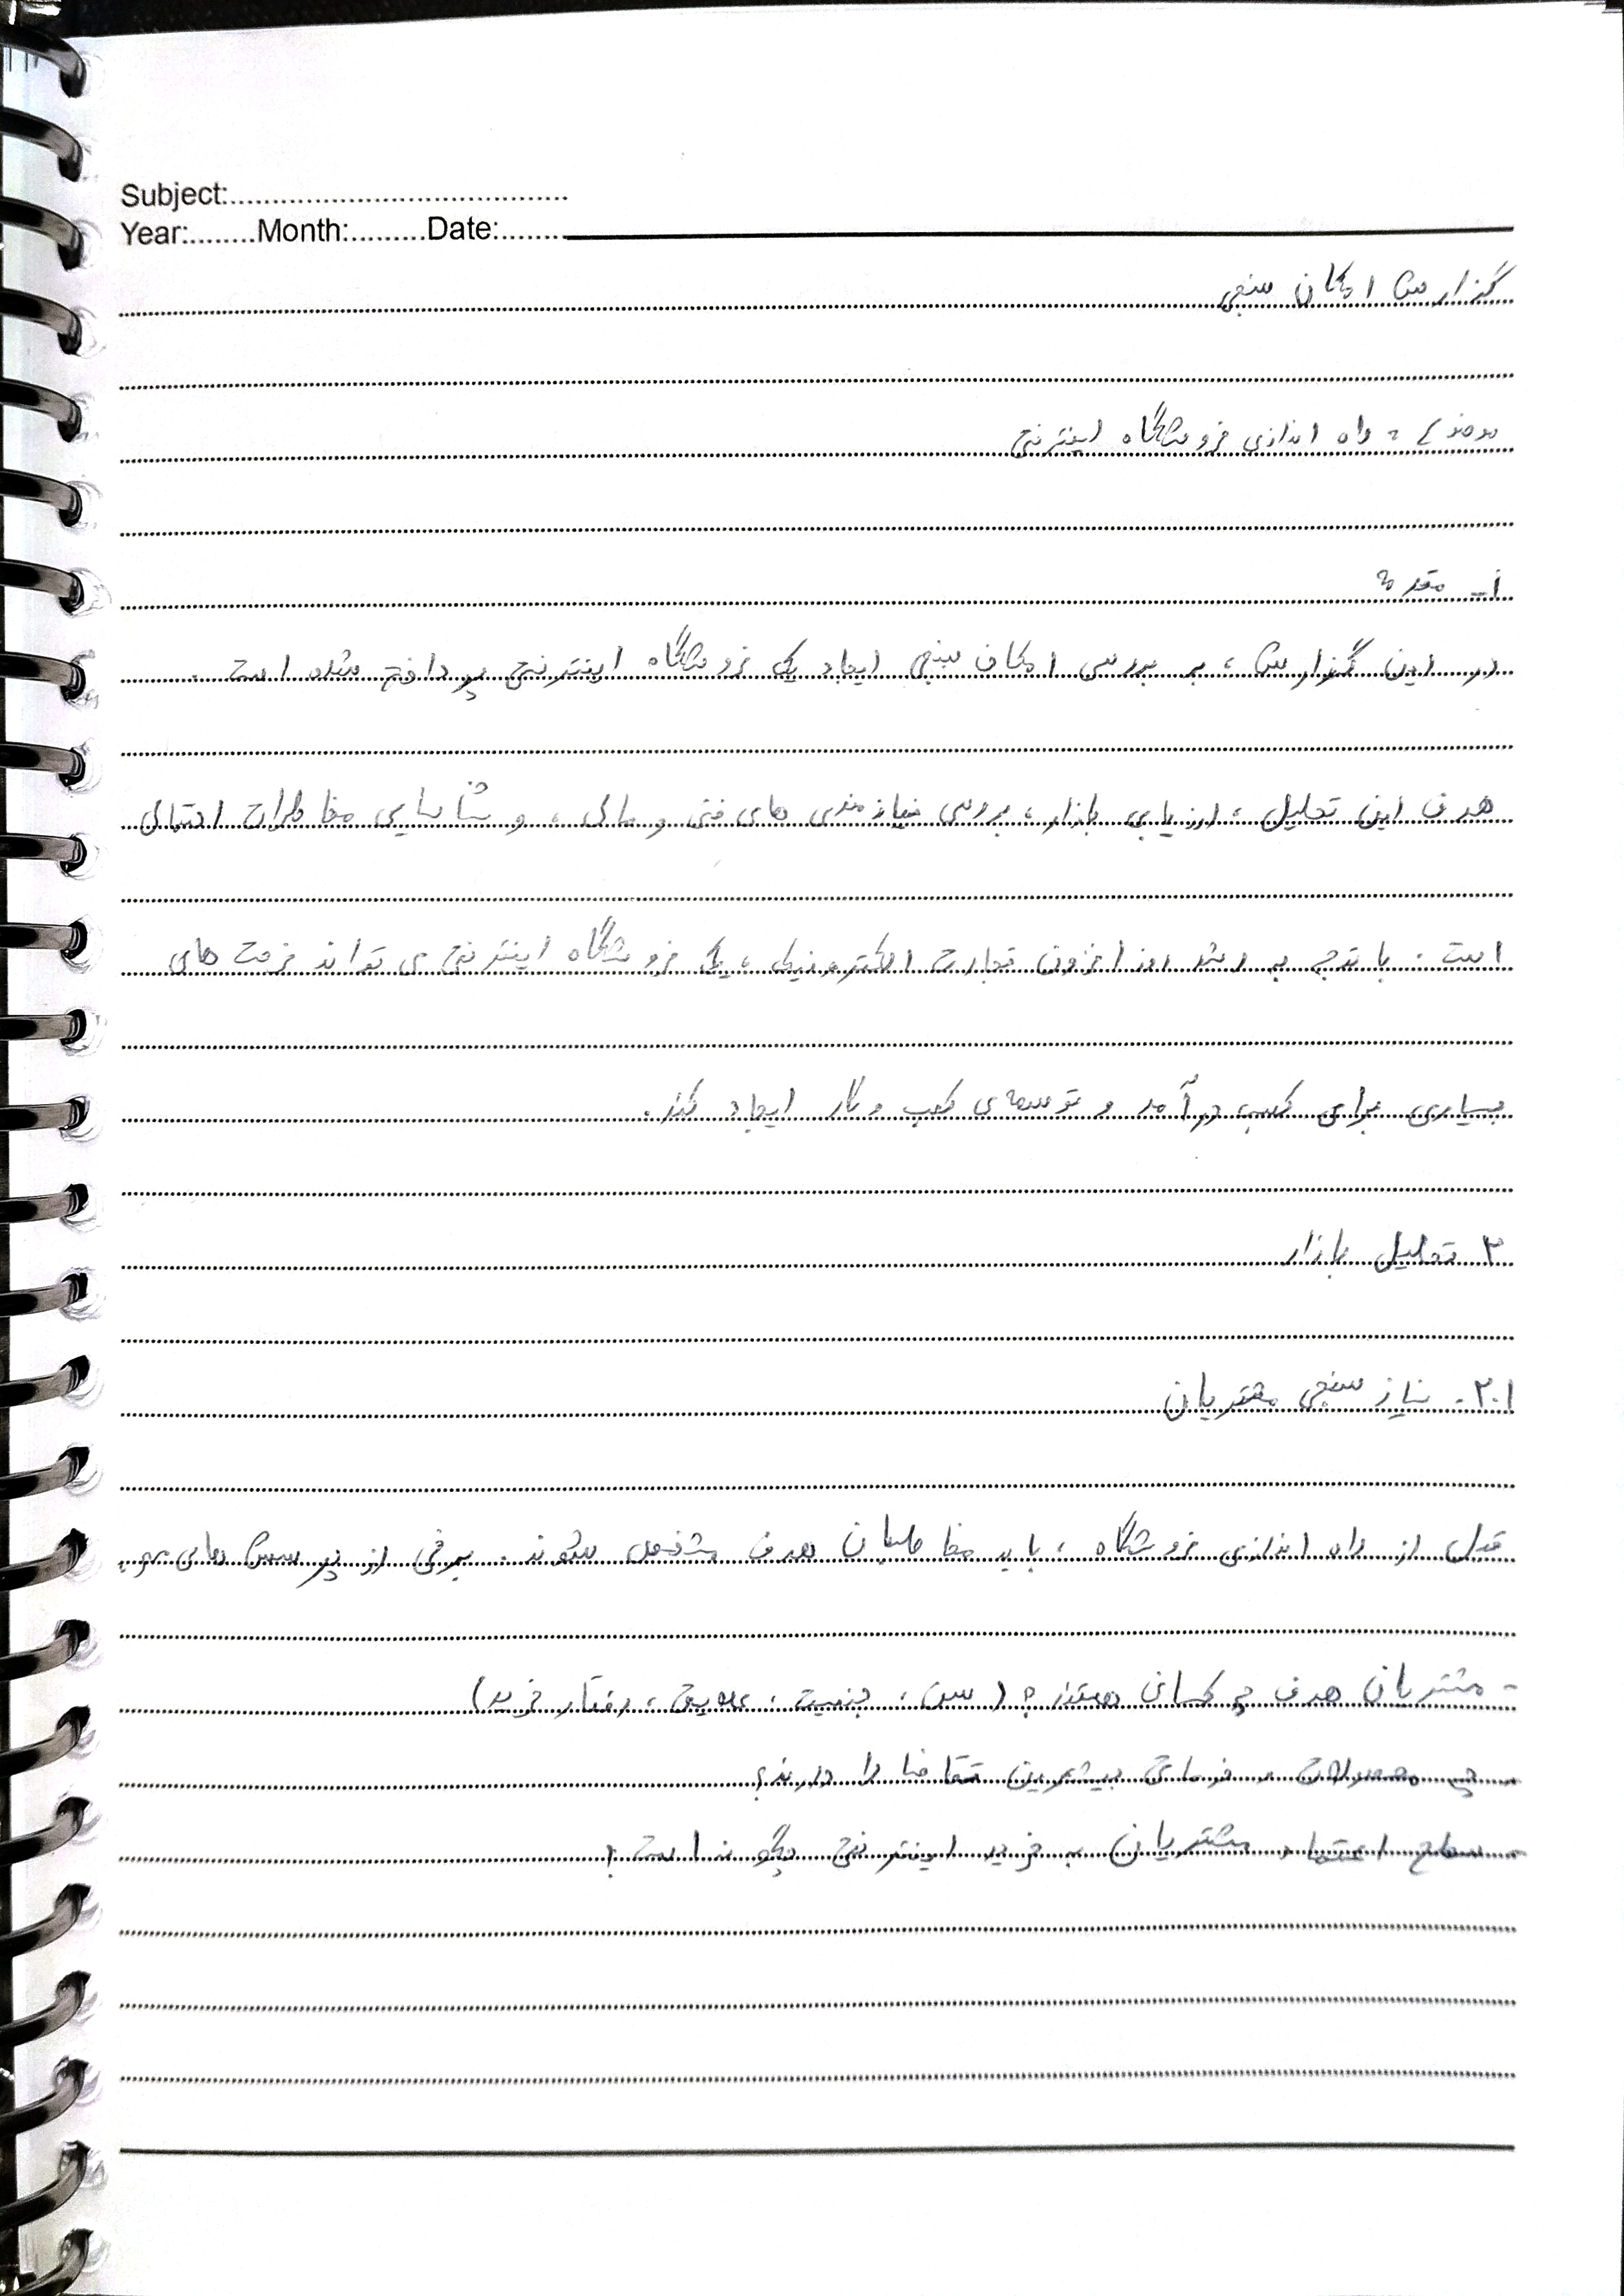 Subject:
Year: Month: Date:
گزارش امکان سنجی
موضوع : راه اندازی فروشگاه اینترنتی
۱- مقدمه
در این گزارش ، به بررسی امکان سنجی ایجاد یک فروشگاه اینترنتی پرداخته شده است .
هدف این تحلیل ، ارزیابی بازار ، بررسی نیازمندی های فنی و مالی ، و شناسایی مخاطرات احتمالی
است . با توجه به رشد روز افزون تجارت الکترونیکی ، یک فروشگاه اینترنتی می تواند فرصت های
بسیاری برای کسب درآمد و توسعه ی کسب و کار ایجاد کند .
۲. تحلیل بازار
۲.۱. نیاز سنجی مشتریان
قبل از راه اندازی فروشگاه ، باید مخاطبان هدف مشخص شوند . برخی از پرسش های مهم :
- مشتریان هدف چه کسانی هستند ؟ ( سن ، جنسیت ، علایق ، رفتار خرید )
- چه محصولات و خدماتی بیشترین تقاضا را دارند ؟
- سطح اعتماد مشتریان به خرید اینترنتی چگونه است ؟